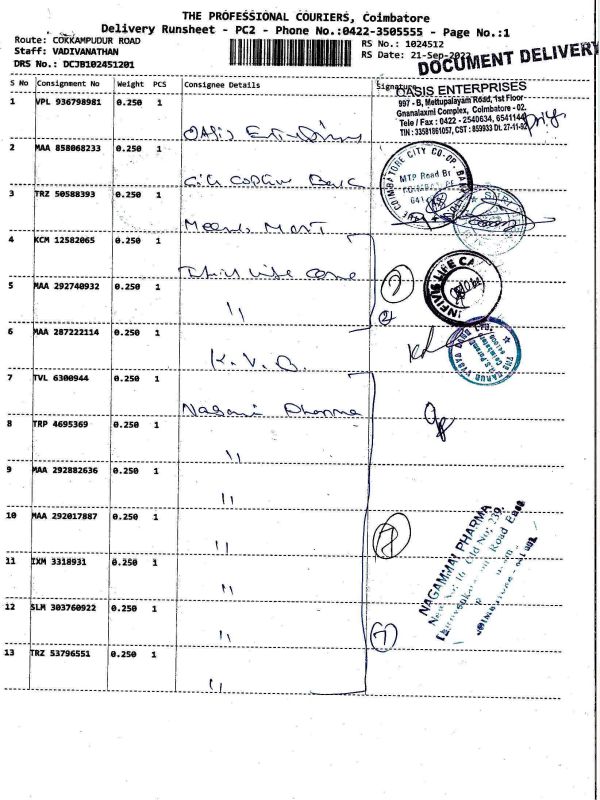 THE PROFESSIONAL COURIERS, Coimbatore
Delivery Runsheet - PC2 - Phone No.:0422-3505555 - Page No.:1
Route: COKKAMPUDUR ROAD
Staff: VADIVANATHAN
DRS No.: DCJB102451201
RS No.: 1024512
RS Date: 21-Sep-2022
DOCUMENT DELIVERY
S No Consignment No Weight PCS Consignee Details Signature
OASIS ENTERPRISES
997 - B, Mettupalayam Road, 1st Floor
Gnanalaxmi Complex, Coimbatore - 02.
Tele / Fax : 0422 - 2540634, 6541144
TIN : 33581861057, CST : 859933 Dt. 27-11-92
1 VPL 936798981 0.250 1 Oasis
2 MAA 858068233 0.250 1
THE COIMBATORE CITY CO-OP. BANK
MTP Road Br
3 TRZ 50588393 0.250 1
4 KCM 12582065 0.250 1 Life Care
INFINITE LIFE CA
5 MAA 292740932 0.250 1 "
6 MAA 287222114 0.250 1 K.V.B.
THE KARUR VYSYA BANK LTD.
7 TVL 6300944 0.250 1 Pharma
8 TRP 4695369 0.250 1 "
9 MAA 292882636 0.250 1 "
10 MAA 292017887 0.250 1 "
11 IXM 3318931 0.250 1 "
12 SLM 303760922 0.250 1 "
7
13 TRZ 53796551 0.250 1 "
NAGAMMAI PHARMA
New No. 16 Old No. 239,
Road East